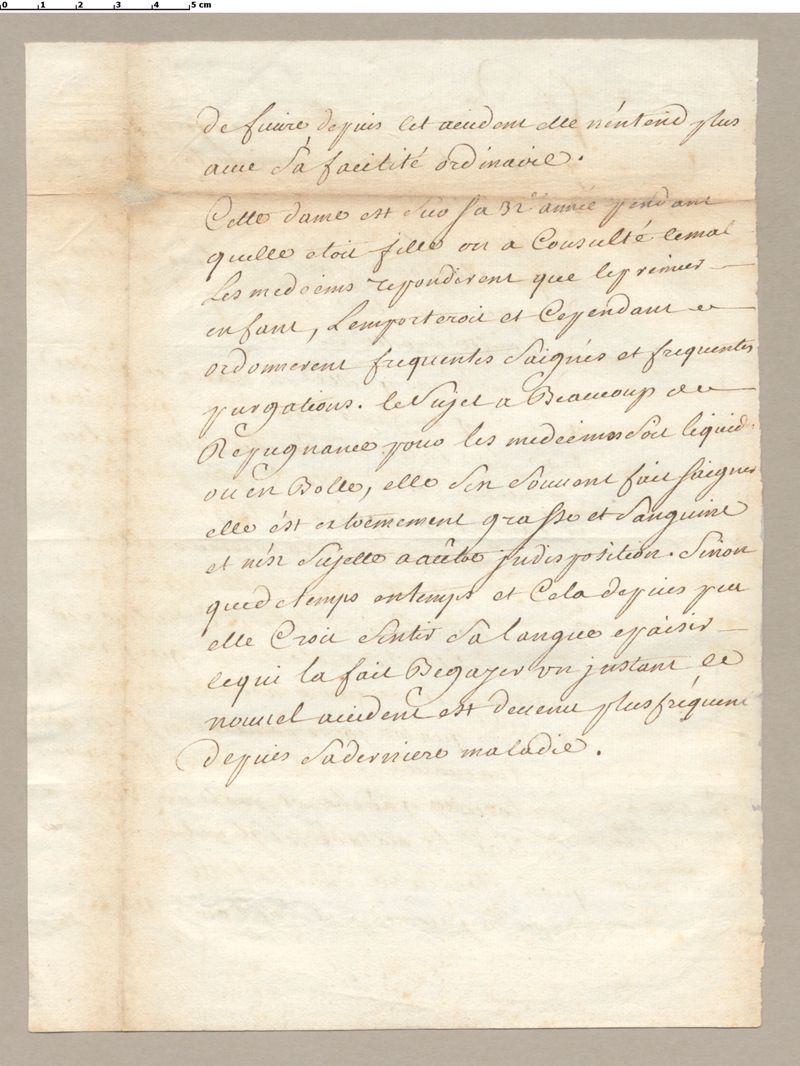 0 1 2 3 4 5 cm
de fievre, depuis cet accident elle n'éntend plus
avec Sa facilité ordinaire.
Cette dame est Sur Sa 32e année pendant
quelle etoit fille on a Consulté lemal
Les medecins repondirent que le premier
enfant, L'emporteroit et Cependant
ordonnerent frequentes Saignés et frequentes
purgations. le Sujet a Beaucoup de
Repugnance pour les medecines Soit liquid
ou en Bolle, elle S'en Souvent fait Saigner
elle ést extremement grasse et Sanguine
et n'ést Sujette a aûtre jndisposition. Sinon
que de temps entemps et Cela depuis peu
elle Croit Sentir Sa langue epaisir
lequi la fait Begayer un jnstant ce
nouvel accident est devenu plus fréquent
depuis Saderniere maladie.